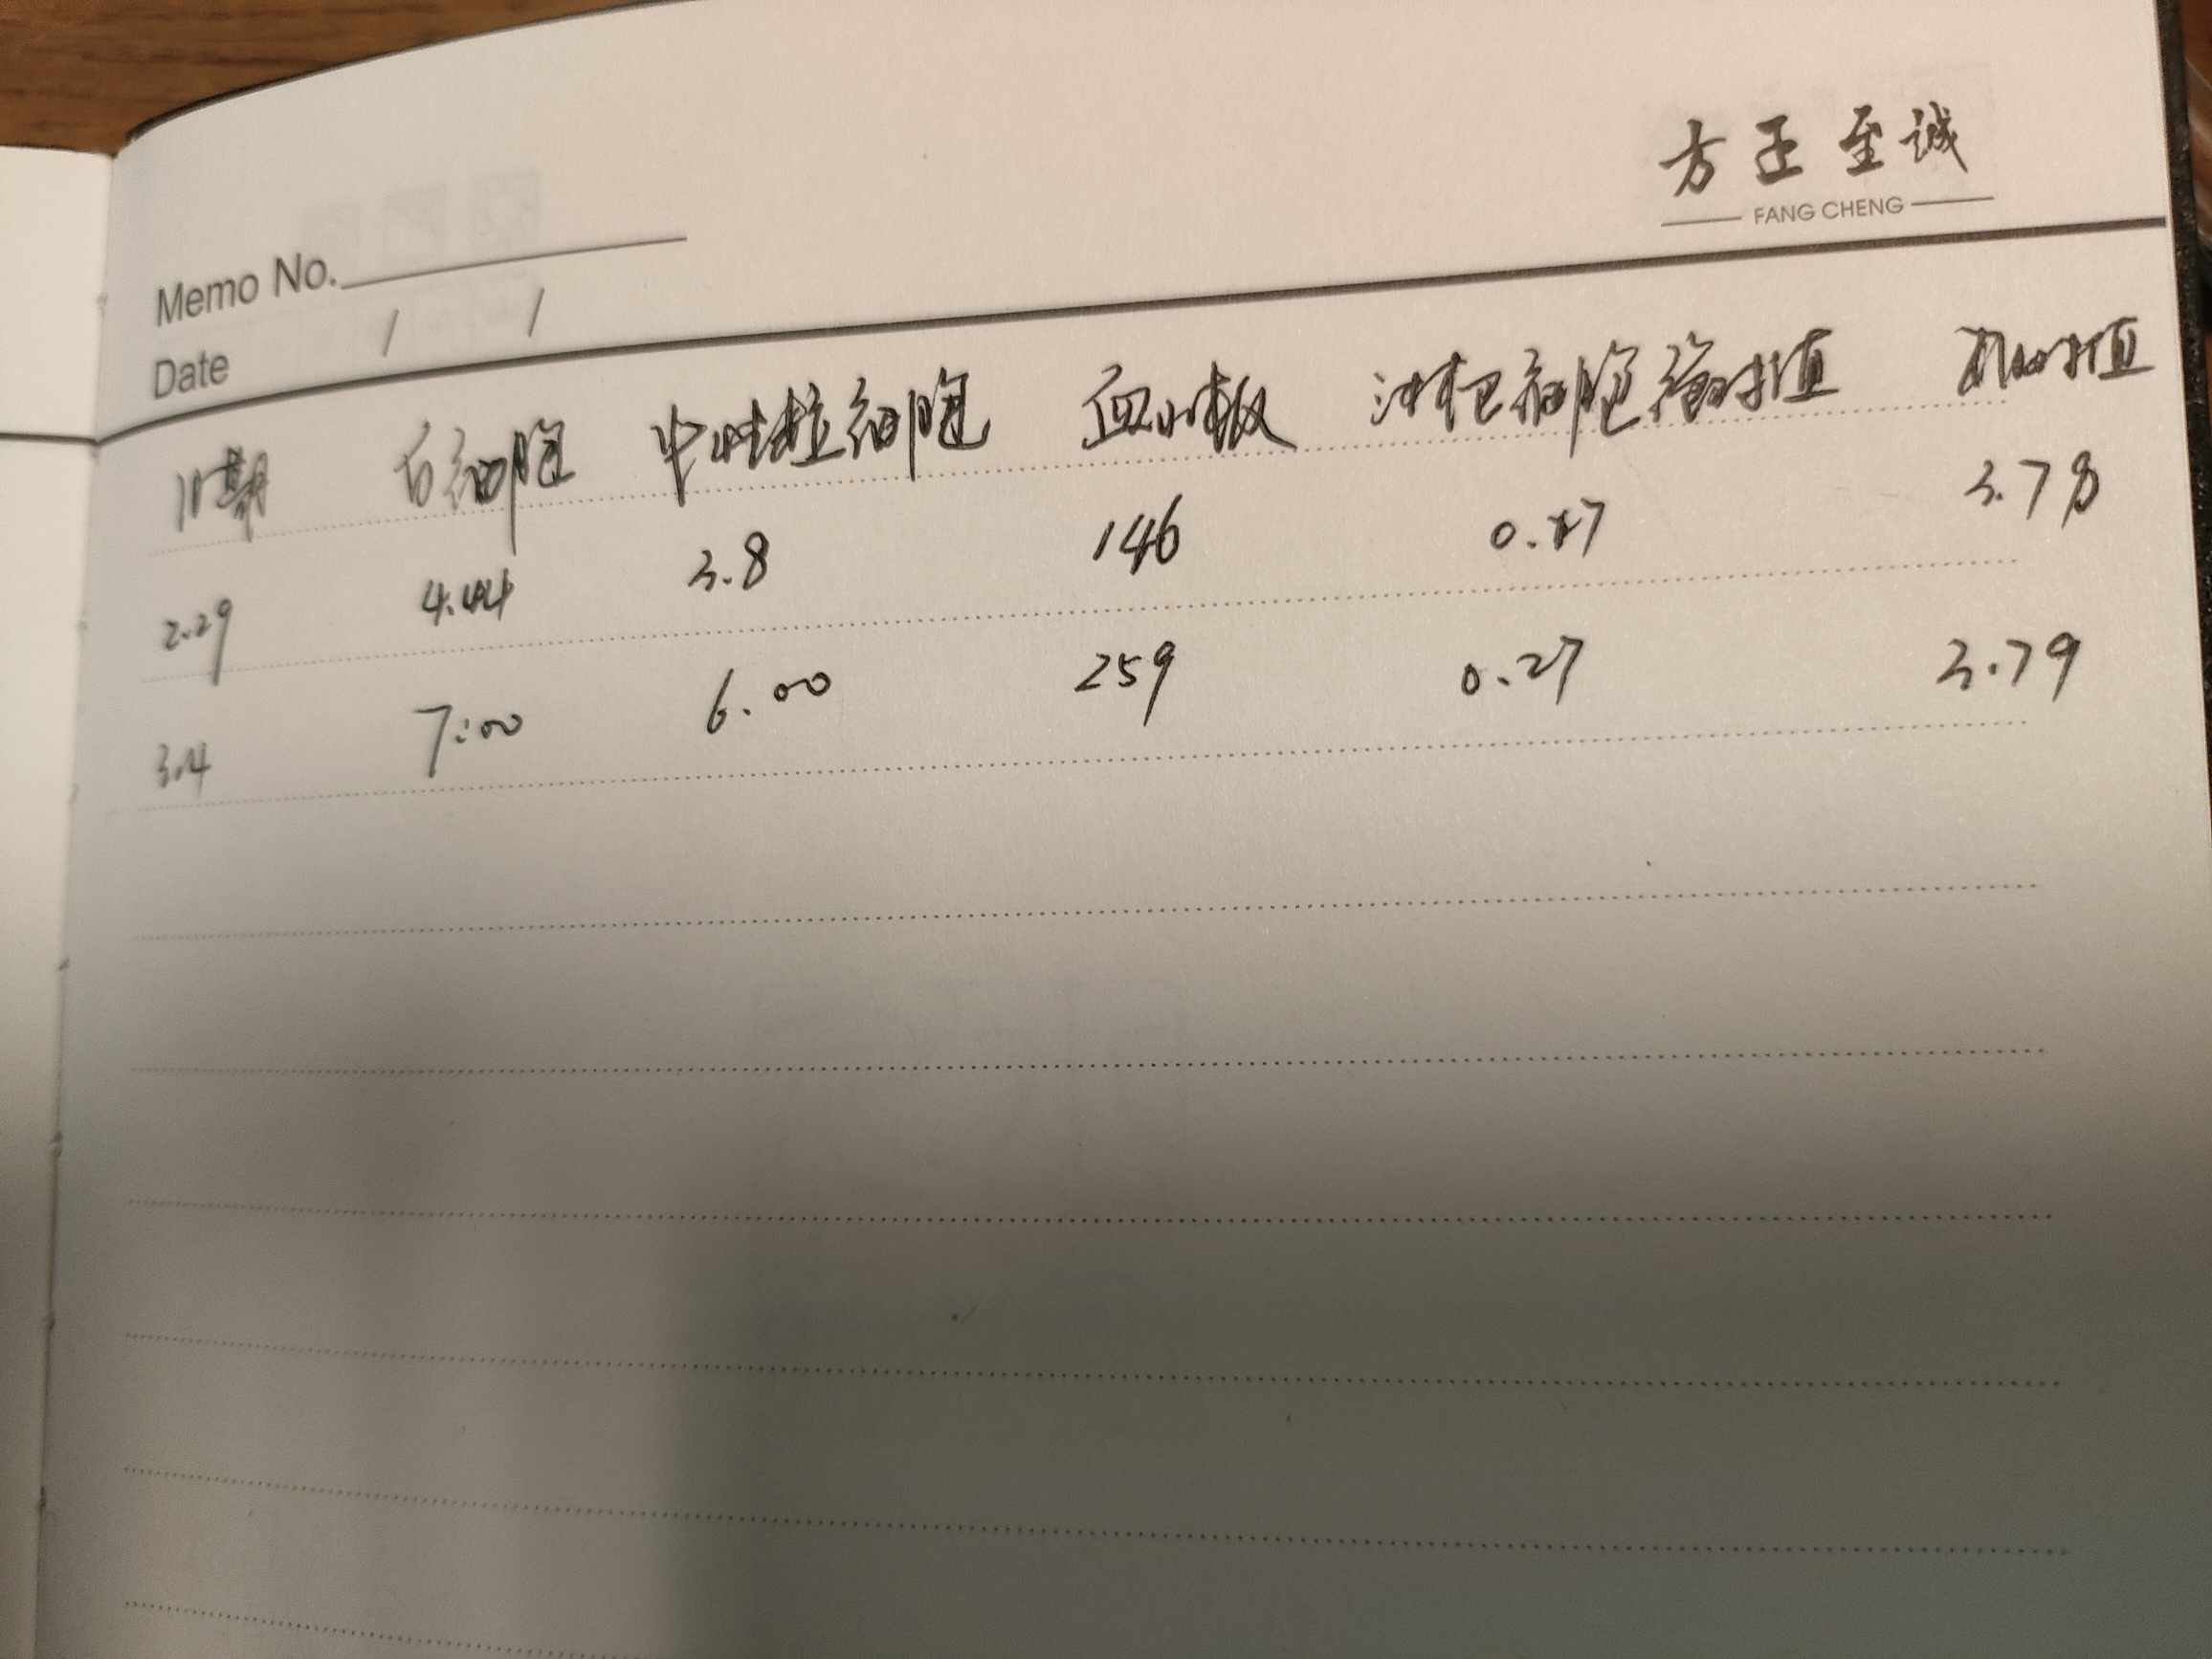 方正至诚
FANG CHENG
Memo No.
Date / /
日期 白细胞 中性粒细胞 血小板 淋巴细胞绝对值
2.29 4.44 3.8 146 3.78
3.4 7:00 6.00 259 0.27 3.79